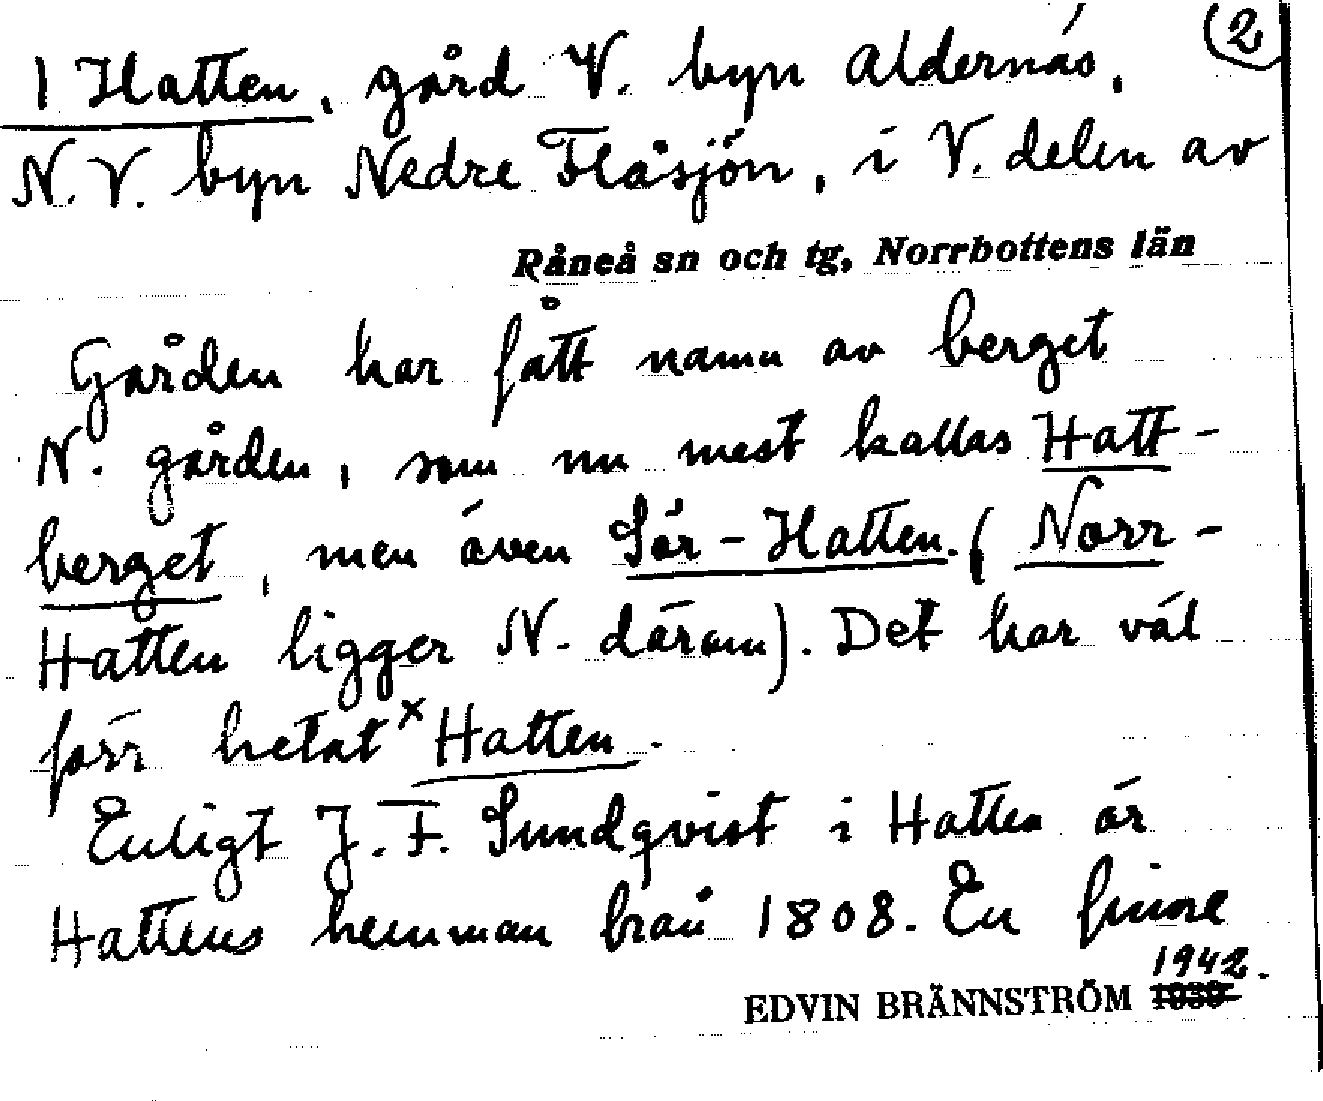 (2
1 Hatten, gård V. byn Aldernäs,
N.V. byn Nedre Flåsjön, i V. delen av
Råneå sn och tg, Norrbottens län
Gården har fått namn av berget
N. gården, som nu mest kallas Hatt-
berget, men även Sör-Hatten. (Norr-
Hatten ligger N. därom). Det har väl
förr hetat x Hatten.
Enligt J. F. Sundqvist i Hatten är
Hattens hemman från 1808. En finne
1942.
EDVIN BRÄNNSTRÖM 1939